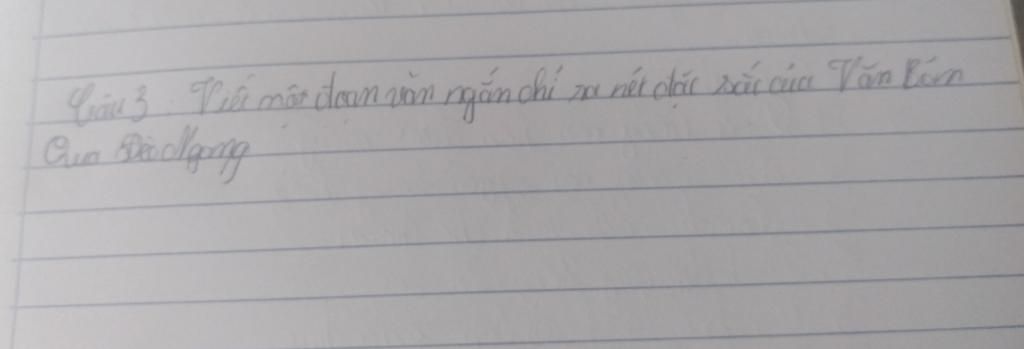 Câu 3: Viết một đoạn văn ngắn chỉ ra nét đặc sắc của Văn Bản
Qua Đèo Ngang